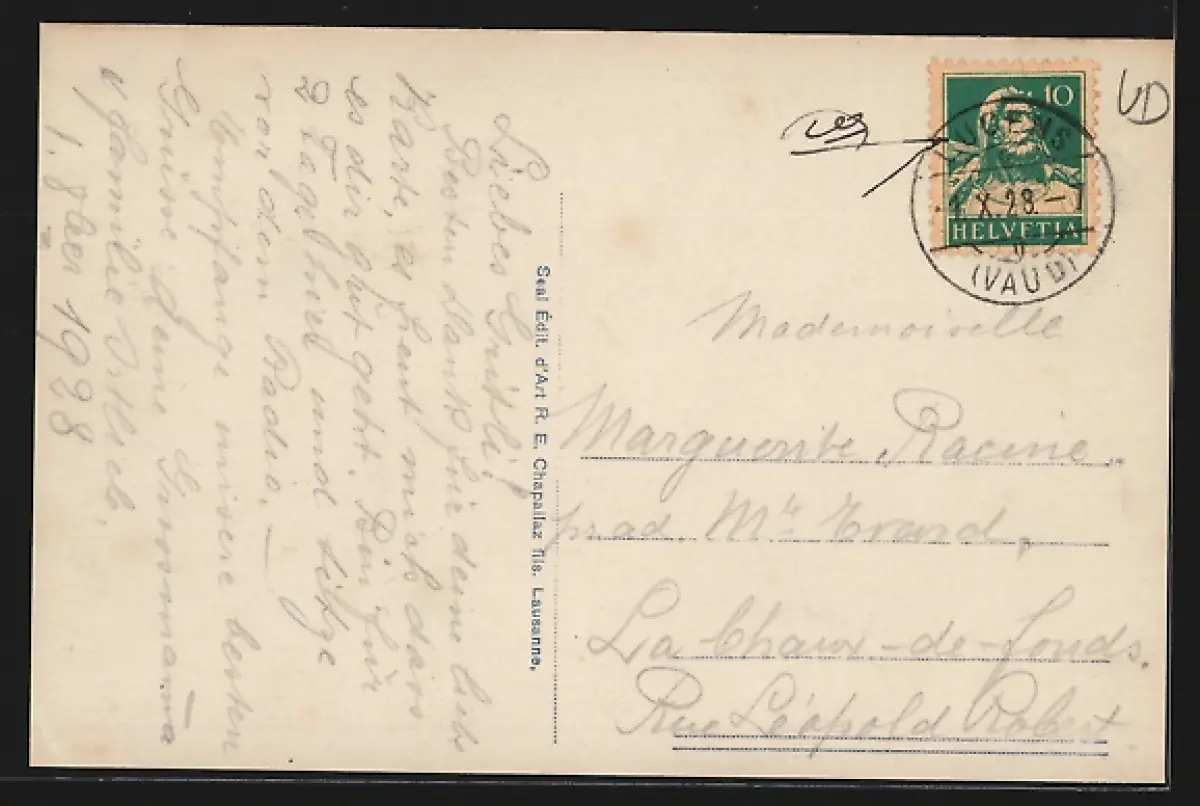 Liebes Gritli!
Besten Dank für deine liebe
Karte, es freut mich dass
es dir gut geht. Bin für
2 Tage hier und sitze
vor dem Radio. —
Empfange unsere besten
Grüsse deine Grossmama
u familie Ortlieb.
1. 8ber 1928
Seal Édit. d'Art R. E. Chapallaz fils. Lausanne,
10
HELVETIA
X.28.—7
(VAUD)
VD
Mademoiselle
Marguerite Racine
prad. Mr Evard,
La Chaux-de-fonds.
Rue Léopold Robert